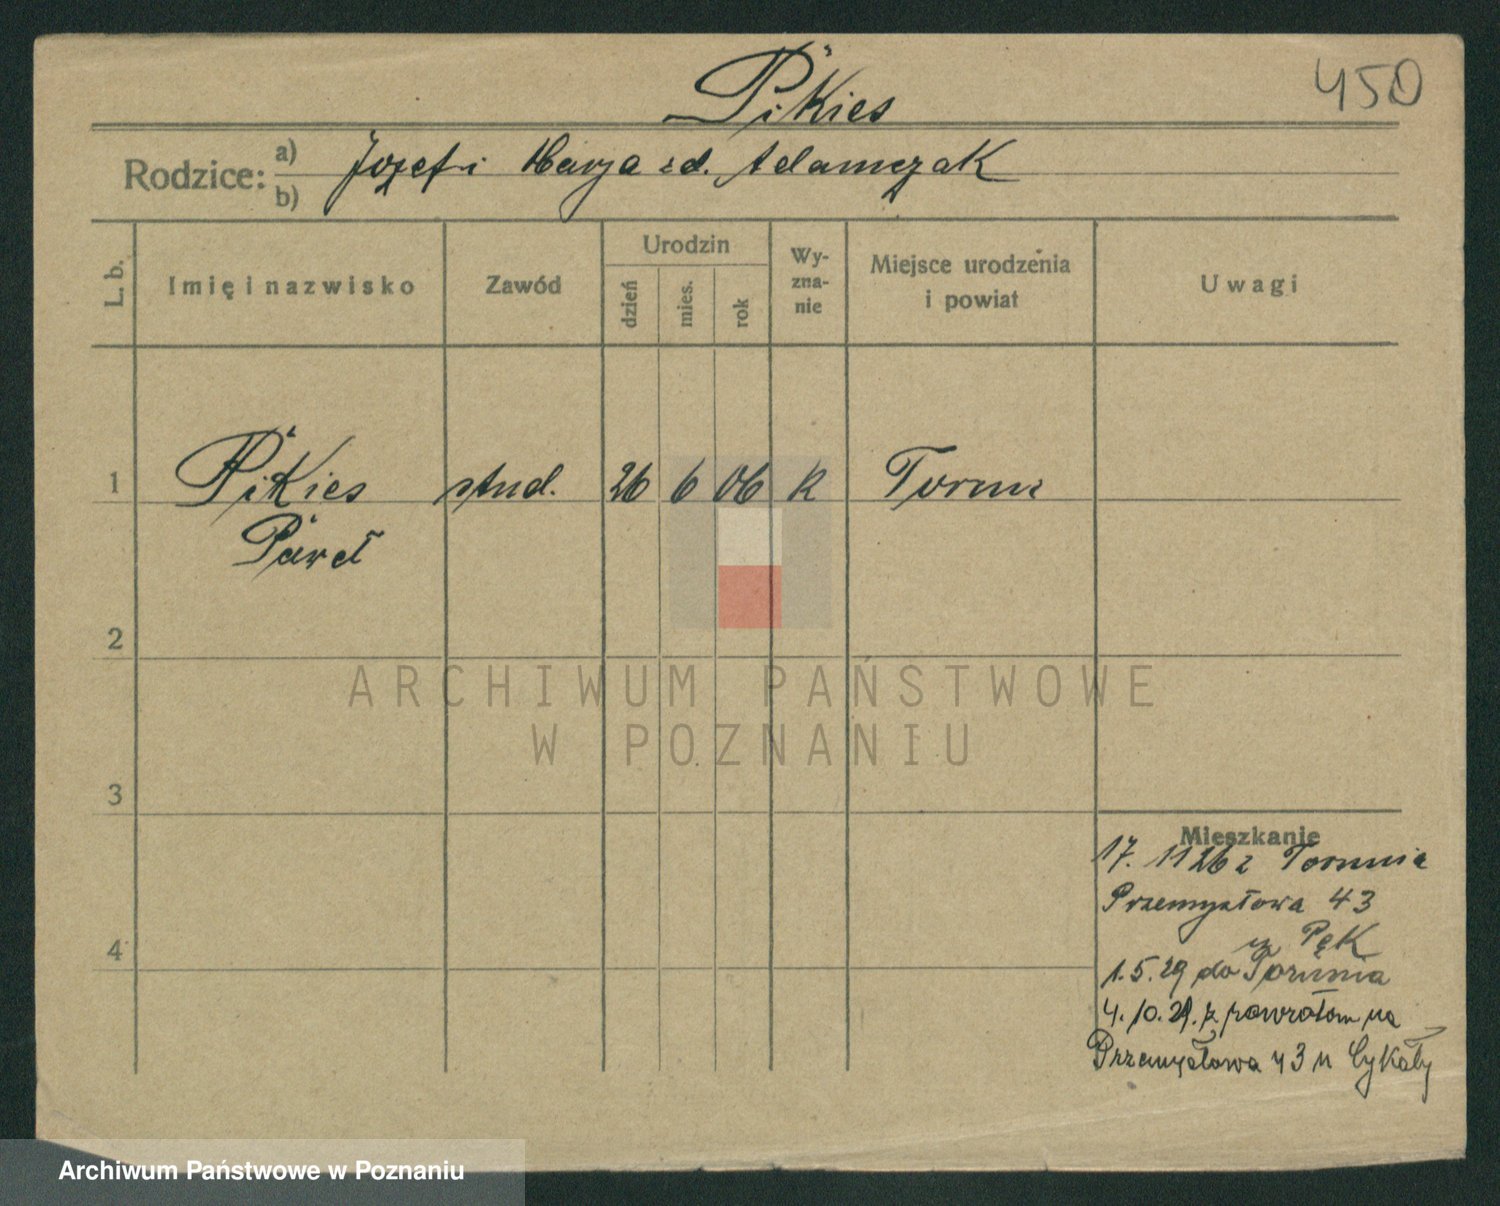 450
Pikies
Rodzice: a) Józef i Marja zd. Adamczak
b)
L. b. Imię i nazwisko Zawód Urodzin dzień mies. rok Wyznanie Miejsce urodzenia i powiat Uwagi
1 Pikies stud. 26 6 06 k Toruń
Paweł
2
ARCHIWUM PAŃSTWOWE
W POZNANIU
3
Mieszkanie
17. 11 26 z Torunia
Przemysłowa 43
u Pęk
4
1.5.29 do Torunia
4.10.29. z powrotem na
Przemysłowa 43 u Cykały
Archiwum Państwowe w Poznaniu